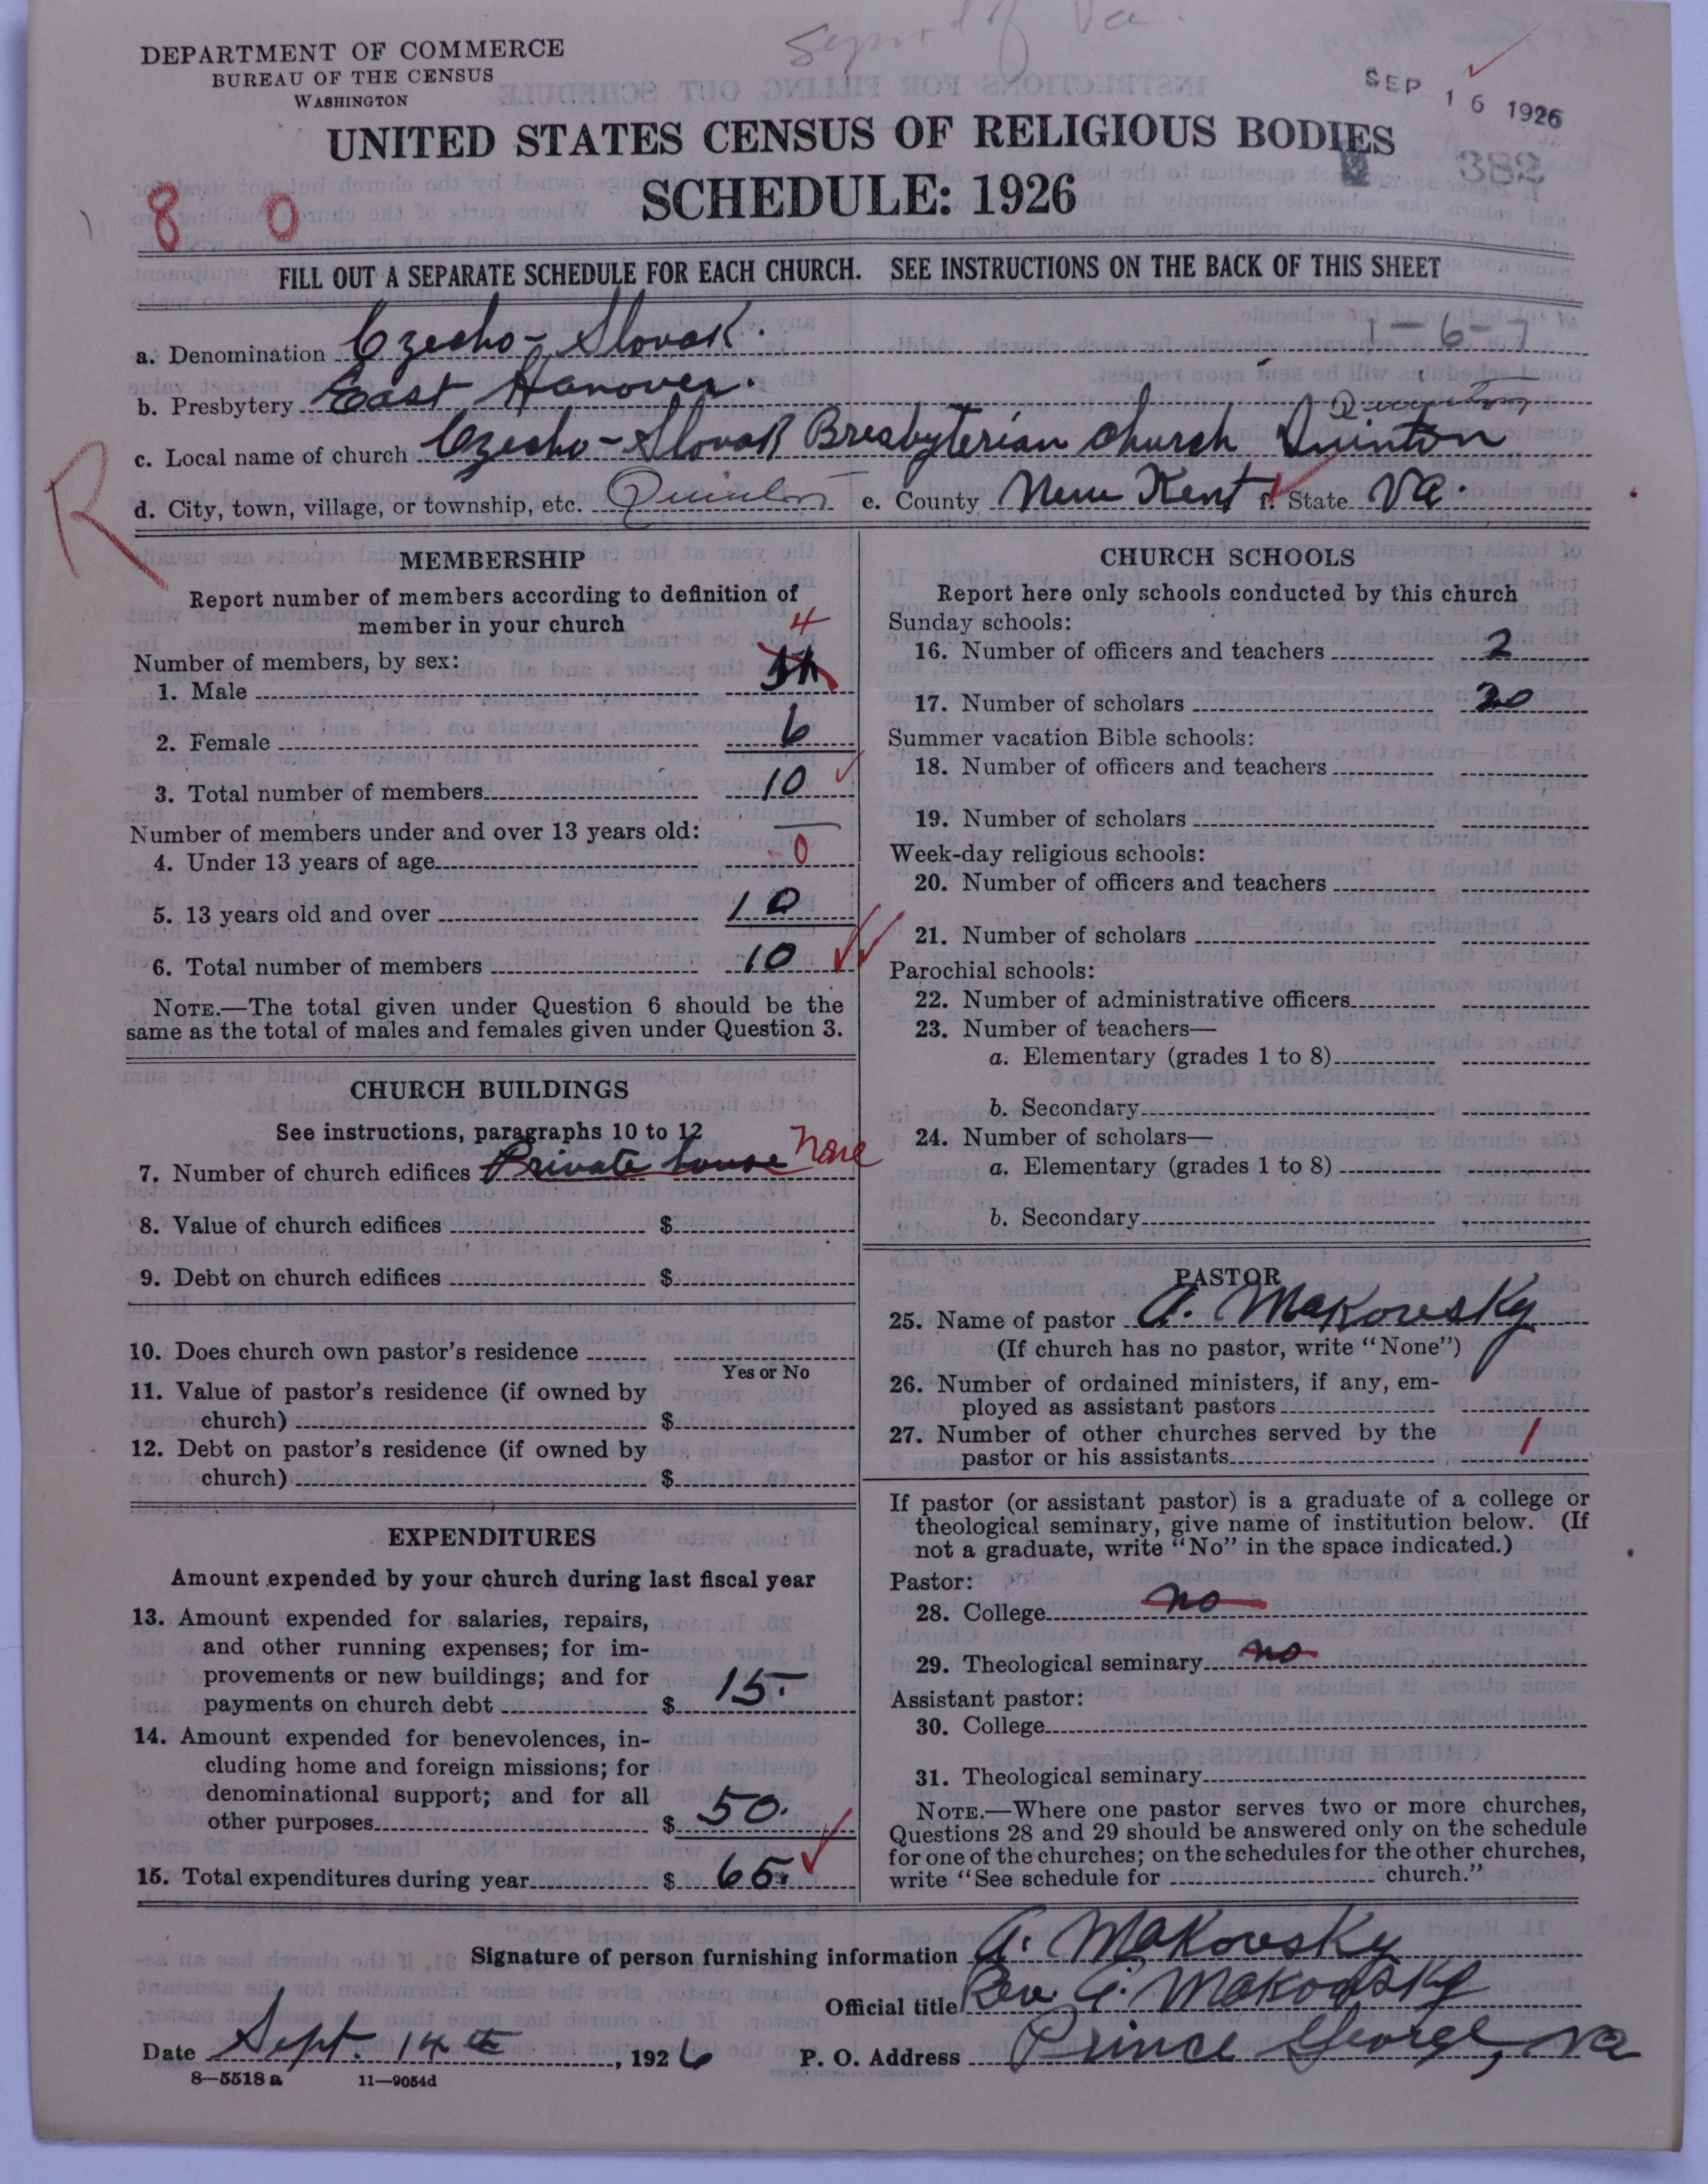 Synod of Va.
DEPARTMENT OF COMMERCE
BUREAU OF THE CENSUS
WASHINGTON
SEP 16 1926
UNITED STATES CENSUS OF RELIGIOUS BODIES
382
SCHEDULE: 1926
8 0
FILL OUT A SEPARATE SCHEDULE FOR EACH CHURCH. SEE INSTRUCTIONS ON THE BACK OF THIS SHEET
1-6-7
a. Denomination Czecho-Slovak.
b. Presbytery East Hanover.
Quinton
c. Local name of church Czecho-Slovak Presbyterian church Quinton
R
d. City, town, village, or township, etc. Quinton e. County New Kent f. State Va.
MEMBERSHIP
Report number of members according to definition of
member in your church
Number of members, by sex:
4
1. Male
2. Female 6
3. Total number of members 10
Number of members under and over 13 years old:
4. Under 13 years of age 0
5. 13 years old and over 10
6. Total number of members 10
NOTE.—The total given under Question 6 should be the
same as the total of males and females given under Question 3.
CHURCH BUILDINGS
See instructions, paragraphs 10 to 12
7. Number of church edifices Private house None
8. Value of church edifices $
9. Debt on church edifices $
10. Does church own pastor's residence
Yes or No
11. Value of pastor's residence (if owned by
church) $
12. Debt on pastor's residence (if owned by
church) $
EXPENDITURES
Amount expended by your church during last fiscal year
13. Amount expended for salaries, repairs,
and other running expenses; for im-
provements or new buildings; and for
payments on church debt $ 15.
14. Amount expended for benevolences, in-
cluding home and foreign missions; for
denominational support; and for all
other purposes $ 50.
15. Total expenditures during year $ 65.
CHURCH SCHOOLS
Report here only schools conducted by this church
Sunday schools:
16. Number of officers and teachers 2
17. Number of scholars 20
Summer vacation Bible schools:
18. Number of officers and teachers
19. Number of scholars
Week-day religious schools:
20. Number of officers and teachers
21. Number of scholars
Parochial schools:
22. Number of administrative officers
23. Number of teachers—
a. Elementary (grades 1 to 8)
b. Secondary
24. Number of scholars—
a. Elementary (grades 1 to 8)
b. Secondary
PASTOR
25. Name of pastor A. Makovsky
(If church has no pastor, write "None")
26. Number of ordained ministers, if any, em-
ployed as assistant pastors
27. Number of other churches served by the
pastor or his assistants 1
If pastor (or assistant pastor) is a graduate of a college or
theological seminary, give name of institution below. (If
not a graduate, write "No" in the space indicated.)
Pastor:
28. College no
29. Theological seminary no
Assistant pastor:
30. College
31. Theological seminary
NOTE.—Where one pastor serves two or more churches,
Questions 28 and 29 should be answered only on the schedule
for one of the churches; on the schedules for the other churches,
write "See schedule for church."
Signature of person furnishing information A. Makovsky
Official title Rev. A. Makovsky
Date Sept. 14th, 1926 P. O. Address Prince George, Va
8—5518 a 11—9054d